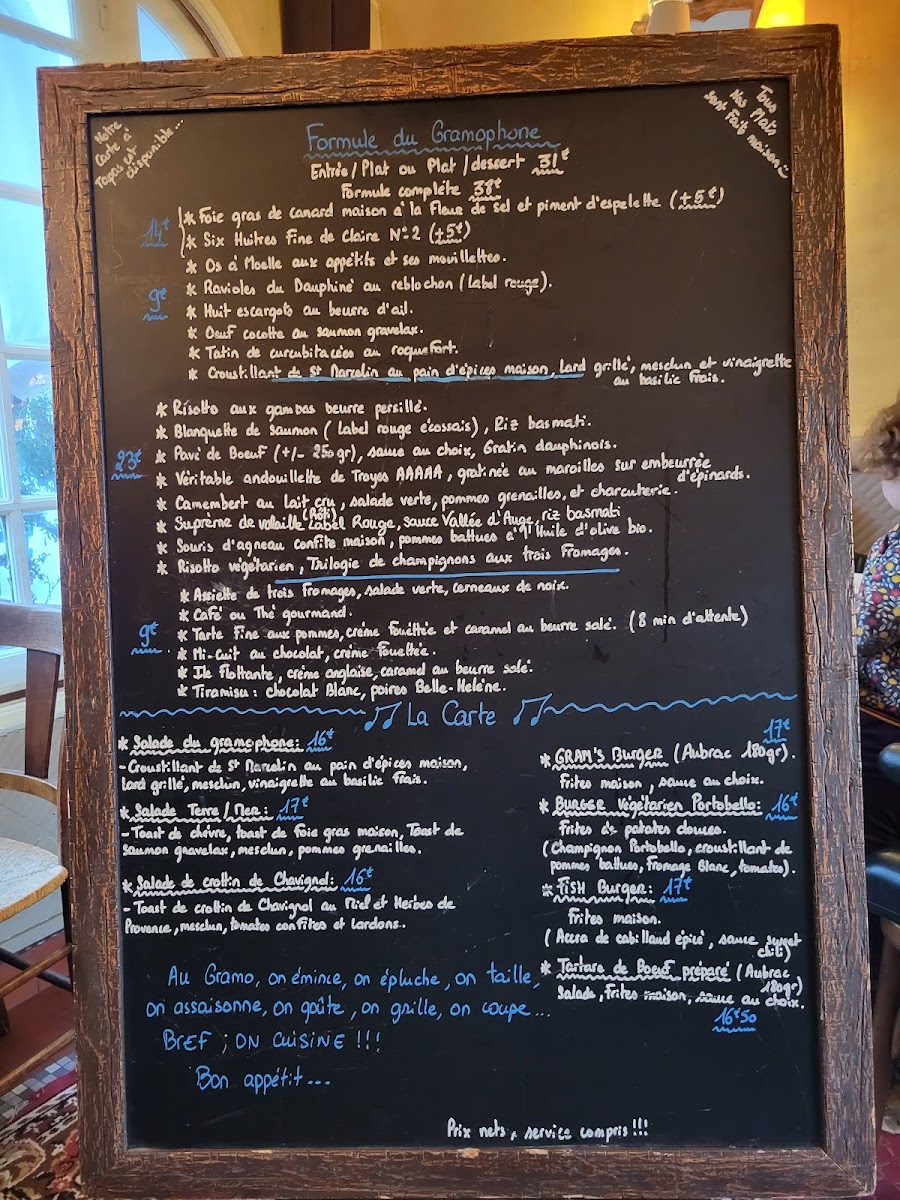 Notre
Carte à
Tapas est
disponible...
Tous
Nos Plats
sont Fait maison
Formule du Gramophone
Entrée/Plat ou Plat/dessert 31€
Formule complète 38€
14€
* Foie gras de canard maison à la Fleur de Sel et piment d'espelette (+5€)
* Six Huitres Fine de Claire N°2 (+5€)
* Os à Moelle aux appétits et ses mouillettes.
9€
* Ravioles du Dauphiné au reblochon (Label rouge).
* Huit escargots au beurre d'ail.
* Oeuf cocotte au saumon gravelax.
* Tatin de curcubitacées au roquefort.
* Croustillant de St Marcelin au pain d'épices maison, lard grillé, mesclun et vinaigrette
au basilic Frais.
* Risotto aux gambas beurre persillé.
* Blanquette de Saumon (Label rouge écossais), Riz basmati.
23€
* Pavé de Boeuf (+/- 250gr), sauce au choix, Gratin dauphinois.
* Véritable andouillette de Troyes AAAAA, gratinée au maroilles sur embeurrée
d'épinards.
* Camembert au lait cru, salade verte, pommes grenailles, et charcuterie.
(Rôti)
* Suprême de volaille Label Rouge, sauce Vallée d'Auge, riz basmati
* Souris d'agneau confite maison, pommes battues à l'Huile d'olive bio.
* Risotto végétarien, Trilogie de champignons aux trois Fromages.
* Assiette de trois Fromages, salade verte, cerneaux de noix.
* Café ou Thé gourmand.
9€
* Tarte Fine aux pommes, crème Fouéttée et caramel au beurre salé. (8 min d'attente)
* Mi-cuit au chocolat, crème Fouettée.
* Ile Flottante, crème anglaise, caramel au beurre salé.
* Tiramisu : chocolat Blanc, poires Belle-Hélène.
La Carte
* Salade du gramophone: 16€
- Croustillant de St Marcelin au pain d'épices maison,
lard grillé, mesclun, vinaigrette au basilic Frais.
* Salade Terre/Mer: 17€
- Toast de chèvre, toast de Foie gras maison, Toast de
Saumon gravelax, mesclun, pommes grenailles.
* Salade de crottin de Chavignol: 16€
- Toast de crottin de Chavignol au Miel et Herbes de
Provence, mesclun, tomates confites et lardons.
17€
* GRAM'S Burger (Aubrac 180gr).
Frites maison, sauce au choix.
* BURGER Végétarien Portobello: 16€
Frites de patates douces.
(Champignon Portobello, croustillant de
pommes battues, Fromage Blanc, tomates).
* FISH Burger: 17€
Frites maison.
(Accra de cabillaud épicé, sauce sweet
chili)
* Tartare de Boeuf préparé (Aubrac
180gr)
Salade, Frites maison, sauce au choix.
16€50
Au Gramo, on émince, on épluche, on taille,
on assaisonne, on goûte, on grille, on coupe...
BREF ; ON CUISINE !!!
Bon appétit...
Prix nets, service compris !!!